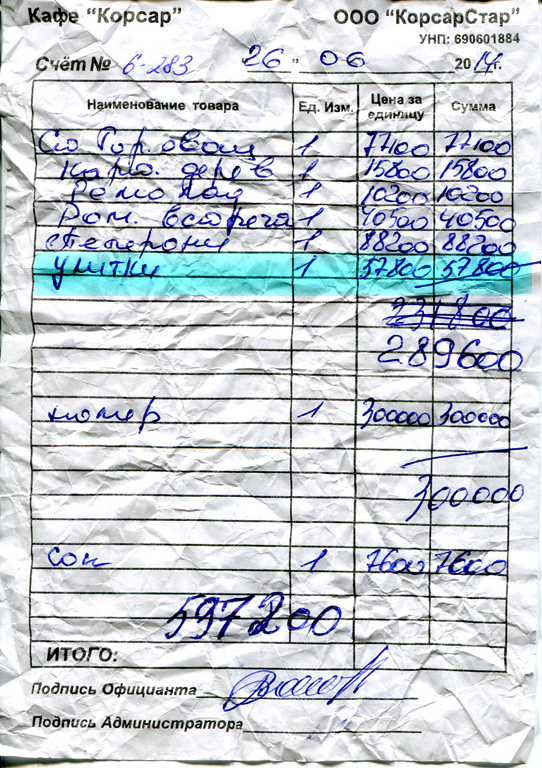 Кафе “Корсар” ООО “КорсарСтар”
УНП: 690601884
Счёт № 6-283 26 ” 06 2014г.
Наименование товара Ед. Изм. Цена за единицу Сумма
1 77100 77100
Карт. дерев 1 15800 15800
1 10200 10200
Ром. встреча 1 40500 40500
1 88200 88200
улитки 1 57800 57800
231800
289600
номер 1 300000 300000
300000
сок 1 7600 7600
597200
ИТОГО:
Подпись Официанта
Подпись Администратора